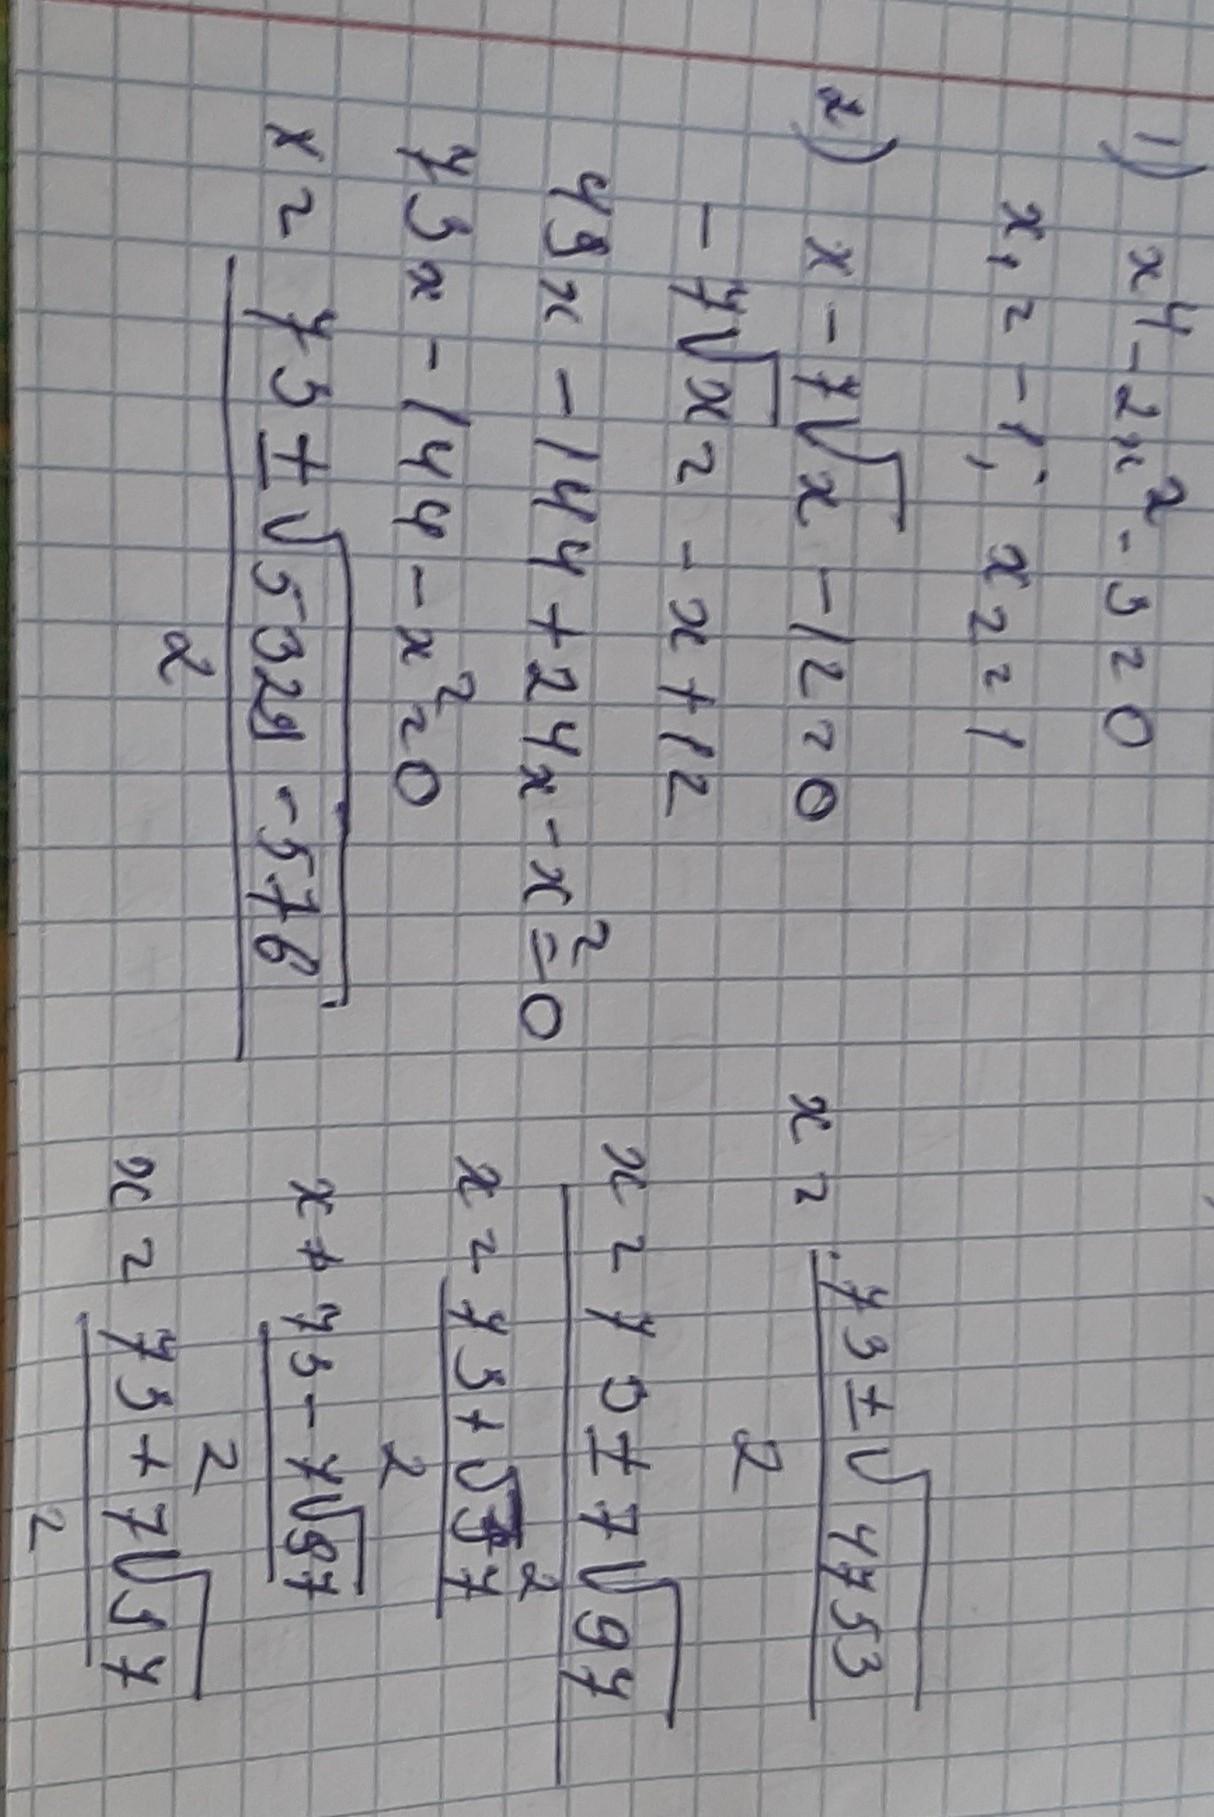 1) x⁴ - 2x² - 3 = 0
x₁ = -1; x₂ = 1
2) x - 7√x - 12 = 0
-7√x = -x + 12
49x - 144 + 24x - x² = 0
73x - 144 - x² = 0
x = (73 ± √(5329 - 576)) / 2
x = (73 ± √4753) / 2
x = (73 ± 7√97) / 2
x = (73 + √97) / 2
x + (73 - 7√97) / 2
x = (73 + 7√97) / 2